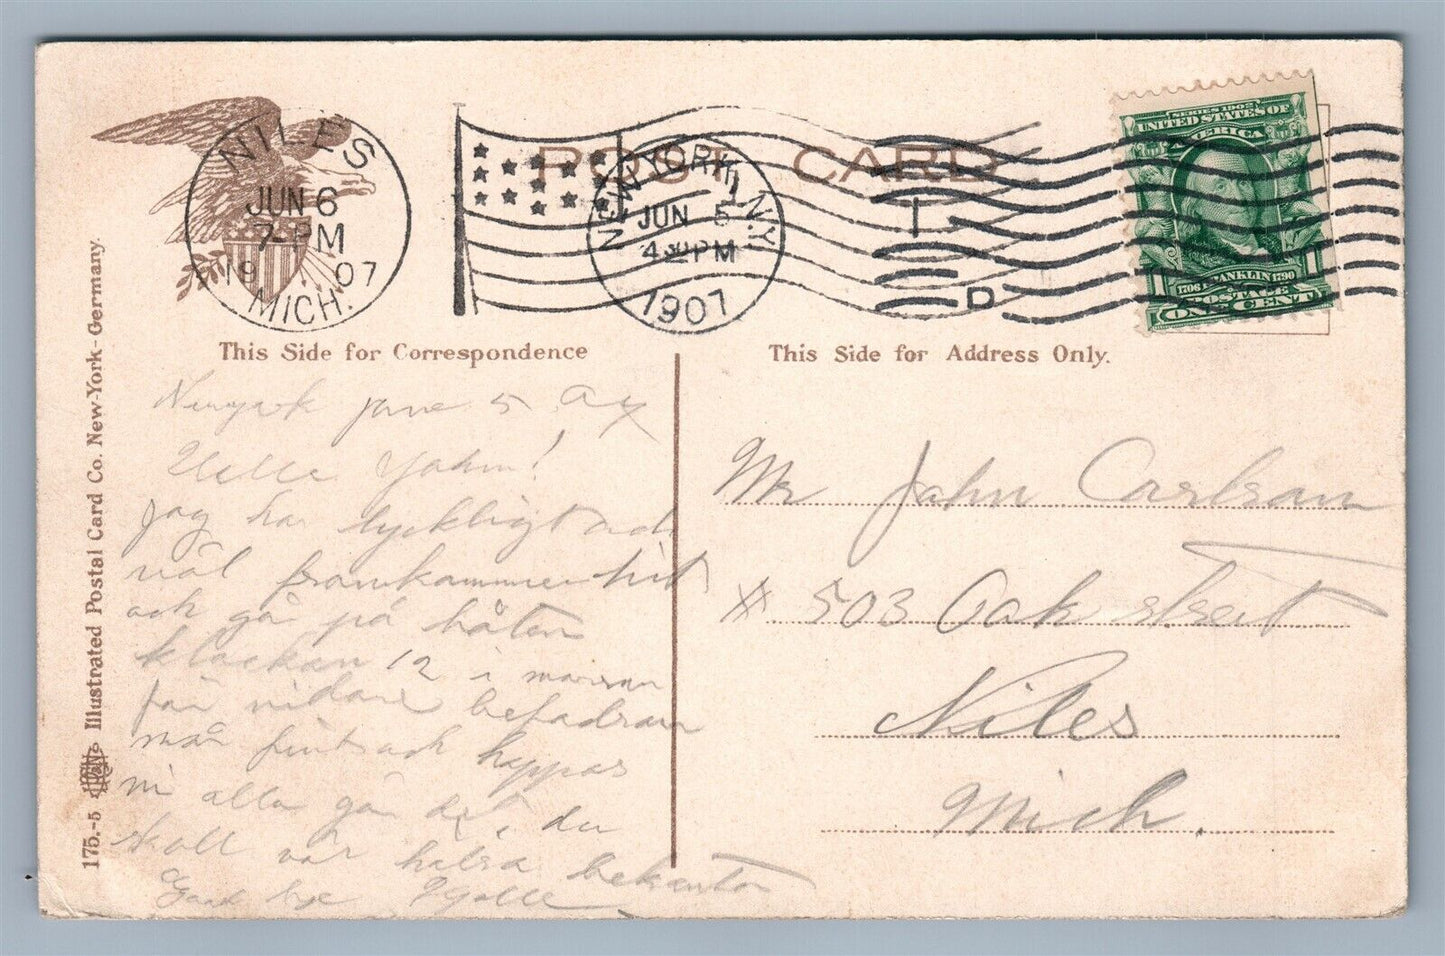 NILES
JUN 6
7-PM
19 07
MICH.
NEW YORK, N.Y.
JUN 5
4 30 PM
1907
D
POST CARD
SERIES 1902
UNITED STATES OF
AMERICA
1706 FRANKLIN 1790
1 POSTAGE 1
ONE CENT
This Side for Correspondence
This Side for Address Only.
175.-5 Illustrated Postal Card Co. New-York-Germany.
Newyork june 5 07
Hello John!
jag har lyckligt och
väl framkommen hit
och går på båten
klockan 12 i morron
för vidare befodran
mår fint och hoppas
ni alla gör det i du
skall väl halsa bekanton
Good bye
Mr John Carlson
# 503 Oak street
Niles
Mich.